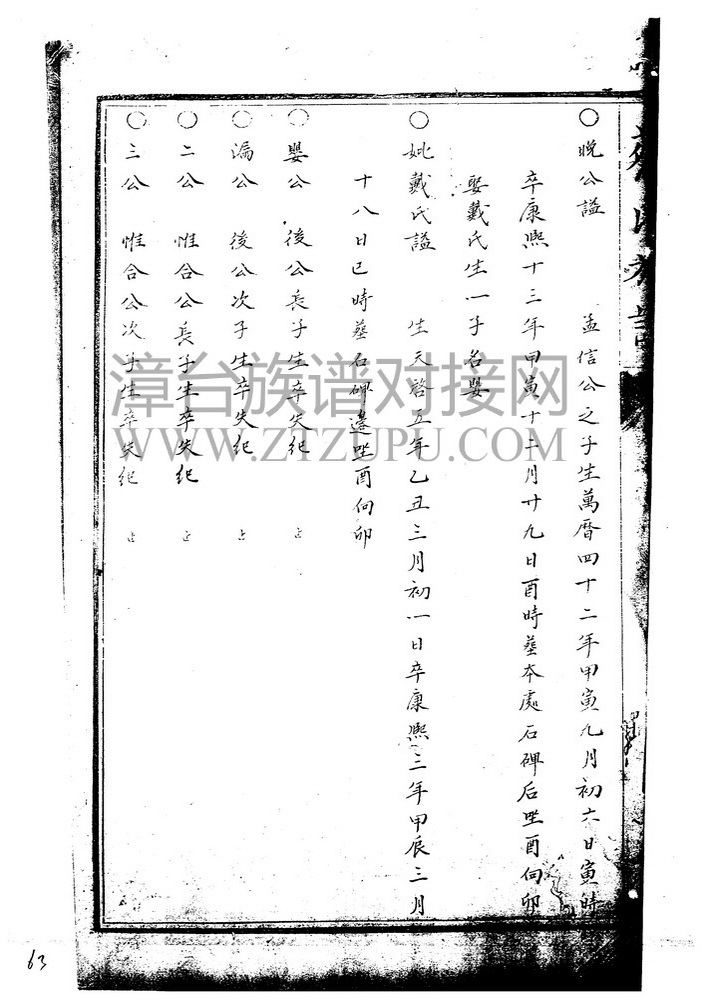 〇晚公謚 孟信公之子生萬曆四十二年甲寅九月初六日寅時
卒康熙十三年甲寅十二月廿九日酉時塟本處石碑后坐酉向卯
娶戴氏生一子名嬰
〇妣戴氏謚 生天啓五年乙丑三月初一日卒康熙三年甲辰三月
十八日巳時塟石碑邊坐酉向卯
〇嬰公 後公長子生卒失紀 止
〇漏公 後公次子生卒失紀 止
〇二公 惟合公長子生卒失紀 止
〇三公 惟合公次子生卒失紀 止
漳台族谱对接网
WWW.ZTZUPU.COM
63